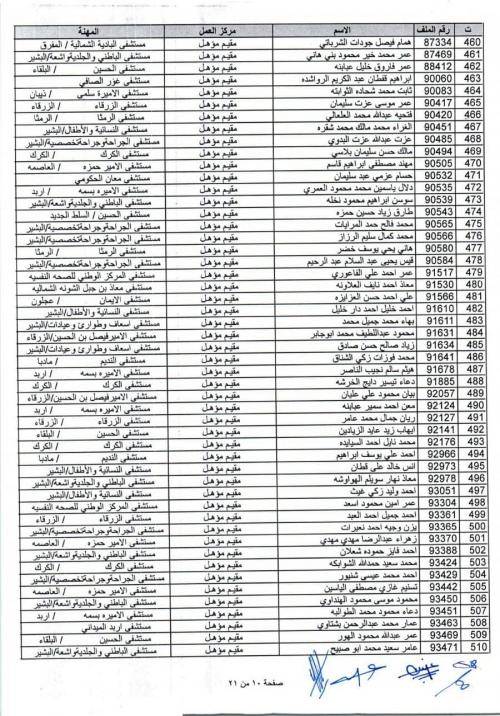 ت رقم الملف الاسم مركز العمل المهنة
460 87334 همام فيصل جودات الشرباتي مقيم مؤهل مستشفى البادية الشمالية / المفرق
461 87469 عمر محمد خير محمود بني هاني مقيم مؤهل مستشفى الباطني والجلدية واشعة/البشير
462 88412 عمر فاروق خليل عبابنه مقيم مؤهل مستشفى الحسين / البلقاء
463 90060 ابراهيم قفطان عبد الكريم الرواشده مقيم مؤهل مستشفى غور الصافي
464 90083 ثابت محمد شحاده الثوابته مقيم مؤهل مستشفى الاميرة سلمى / ذيبان
465 90417 عمر موسى عزت سليمان مقيم مؤهل مستشفى الزرقاء / الزرقاء
466 90420 فتحيه عبدالله محمد العلعالي مقيم مؤهل مستشفى الرمثا / الرمثا
467 90451 الغراء محمد مالك محمد شقره مقيم مؤهل مستشفى النسائية والأطفال/البشير
468 90485 عزت عبدالله عزت البدوي مقيم مؤهل مستشفى الجراحة وجراحة تخصصية/البشير
469 90494 مالك حسن سليمان بلاسي مقيم مؤهل مستشفى الكرك / الكرك
470 90505 مهند مصطفى ابراهيم قاسم مقيم مؤهل مستشفى الامير حمزه / العاصمه
471 90532 حسام عزمي عبد سليمان مقيم مؤهل مستشفى معان الحكومي
472 90535 دلال ياسين محمد محمود العمري مقيم مؤهل مستشفى الاميره بسمه / اربد
473 90539 سوسن ابراهيم محمود نخله مقيم مؤهل مستشفى الباطني والجلدية واشعة/البشير
474 90543 طارق زياد حسين حمزه مقيم مؤهل مستشفى الحسين / السلط الجديد
475 90565 محمد فالح حمد المرايات مقيم مؤهل مستشفى الجراحة وجراحة تخصصية/البشير
476 90566 محمد كمال سليم الرزاز مقيم مؤهل مستشفى الجراحة وجراحة تخصصية/البشير
477 90580 هاني يحي يوسف خضر مقيم مؤهل مستشفى الرمثا / الرمثا
478 90584 قيس يحيى عبد السلام عبد الرحيم مقيم مؤهل مستشفى الجراحة وجراحة تخصصية/البشير
479 91517 عمر احمد علي الفاعوري مقيم مؤهل مستشفى المركز الوطني للصحه النفسيه
480 91530 معاذ احمد نايف العلاونه مقيم مؤهل مستشفى معاذ بن جبل الشونه الشماليه
481 91566 علي احمد حسن العزايزه مقيم مؤهل مستشفى الايمان / عجلون
482 91610 احمد خليل احمد دار خليل مقيم مؤهل مستشفى النسائية والأطفال/البشير
483 91611 بهاء محمد جميل محمد مقيم مؤهل مستشفى اسعاف وطوارئ وعيادات/البشير
484 91631 محمود عبداللطيف محمد ابوجابر مقيم مؤهل مستشفى الاميرفيصل بن الحسين/الزرقاء
485 91634 زياد صالح حسن صادق مقيم مؤهل مستشفى اسعاف وطوارئ وعيادات/البشير
486 91641 محمد فوزات زكي الشناق مقيم مؤهل مستشفى النديم / مادبا
487 91678 هيثم سالم نجيب الناصر مقيم مؤهل مستشفى الاميره بسمه / اربد
488 91885 دعاء تيسير دايح الخرشه مقيم مؤهل مستشفى الكرك / الكرك
489 92057 بيان محمود علي عليان مقيم مؤهل مستشفى الاميرفيصل بن الحسين/الزرقاء
490 92124 معن احمد سمير عبابنه مقيم مؤهل مستشفى الاميره بسمه / اربد
491 92127 ريان جمال محمد عامر مقيم مؤهل مستشفى الزرقاء / الزرقاء
492 92141 ايهاب زيد عابد الزيادين مقيم مؤهل مستشفى الحسين / البلقاء
493 92176 محمد نابل احمد السيايده مقيم مؤهل مستشفى الكرك / الكرك
494 92966 احمد علي يوسف ابراهيم مقيم مؤهل مستشفى النديم / مادبا
495 92973 انس خالد علي قطان مقيم مؤهل مستشفى النسائية والأطفال/البشير
496 92978 معاذ نهار سويلم الهواوشه مقيم مؤهل مستشفى الباطني والجلدية واشعة/البشير
497 93051 احمد وليد زكي غيث مقيم مؤهل مستشفى النسائية والأطفال/البشير
498 93304 عمر امين محمود اسعد مقيم مؤهل مستشفى المركز الوطني للصحه النفسيه
499 93361 احمد جميل احمد العبد مقيم مؤهل مستشفى الزرقاء / الزرقاء
500 93365 يزن وجيه احمد نعيرات مقيم مؤهل مستشفى الجراحة وجراحة تخصصية/البشير
501 93370 زهراء عبدالرضا مهدي مهدي مقيم مؤهل مستشفى الامير حمزه / العاصمه
502 93388 احمد فايز حموده شعلان مقيم مؤهل مستشفى الباطني والجلدية واشعة/البشير
503 93424 محمد سعيد حمدالله الشوابكه مقيم مؤهل مستشفى الكرك / الكرك
504 93429 احمد محمد عيسى شنيور مقيم مؤهل مستشفى الجراحة وجراحة تخصصية/البشير
505 93442 تسنيم غازي مصطفى الياسين مقيم مؤهل مستشفى الامير حمزه / العاصمه
506 93450 محمود موسى محمود الهنداوي مقيم مؤهل مستشفى الباطني والجلدية واشعة/البشير
507 93451 دعاء محمود محمد الطوالبه مقيم مؤهل مستشفى الاميره بسمه / اربد
508 93463 عمار محمد عبدالرحمن بشتاوي مقيم مؤهل مستشفى اربد الميداني
509 93469 عمر عبدالله محمود الهور مقيم مؤهل مستشفى الحسين / البلقاء
510 93471 عامر سعيد محمد ابو صبيح مقيم مؤهل مستشفى الباطني والجلدية واشعة/البشير
صفحة ١٠ من ٢١